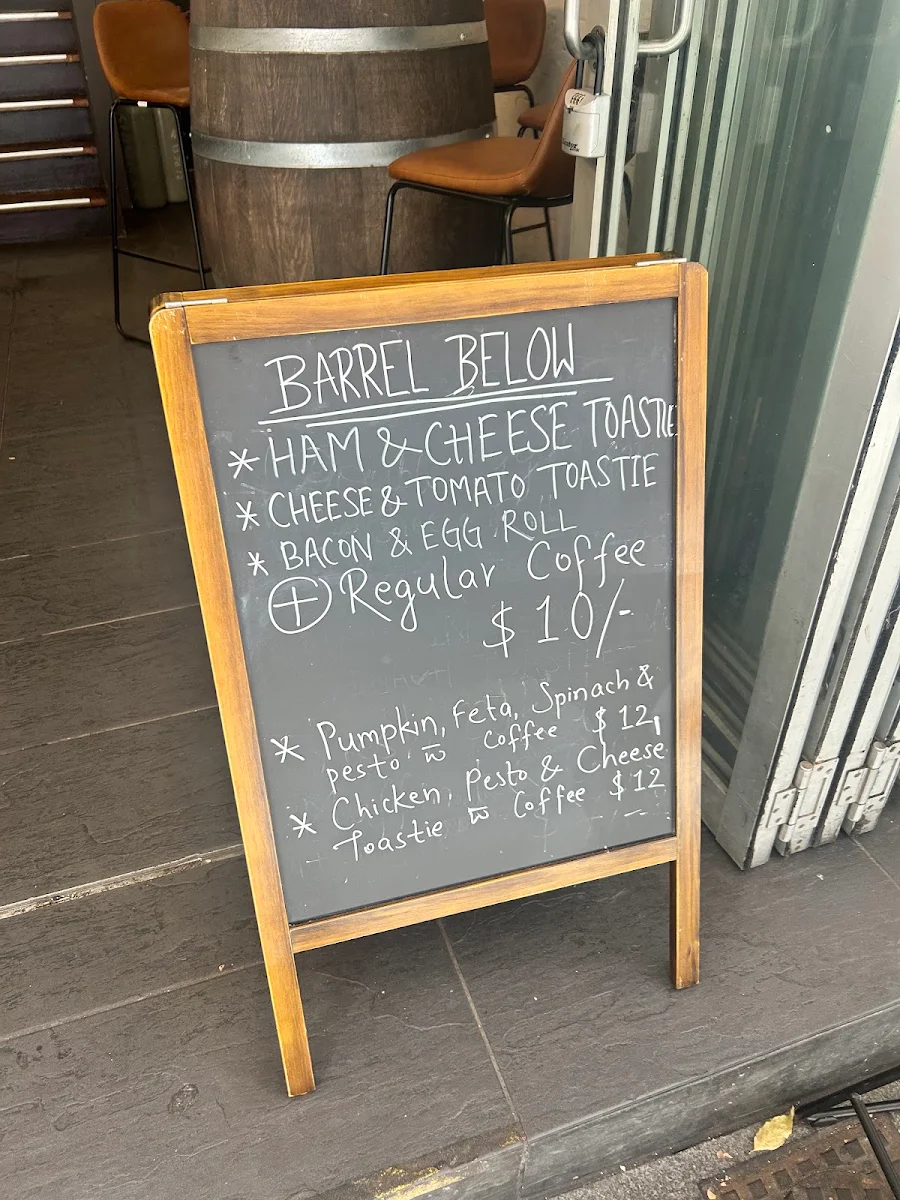 BARREL BELOW
* HAM & CHEESE TOASTIE
* CHEESE & TOMATO TOASTIE
* BACON & EGG ROLL
⊕ Regular Coffee
$10/-
* Pumpkin, Feta, Spinach &
pesto w̅ coffee $12
* Chicken, Pesto & Cheese
Toastie w̅ Coffee $12